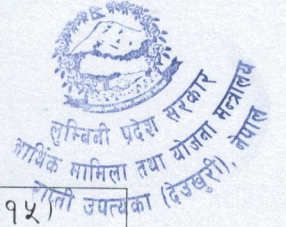 लुम्बिनी प्रदेश सरकार
आर्थिक मामिला तथा योजना मन्त्रालय
राप्ती उपत्यका (देउखुरी), नेपाल
१५)